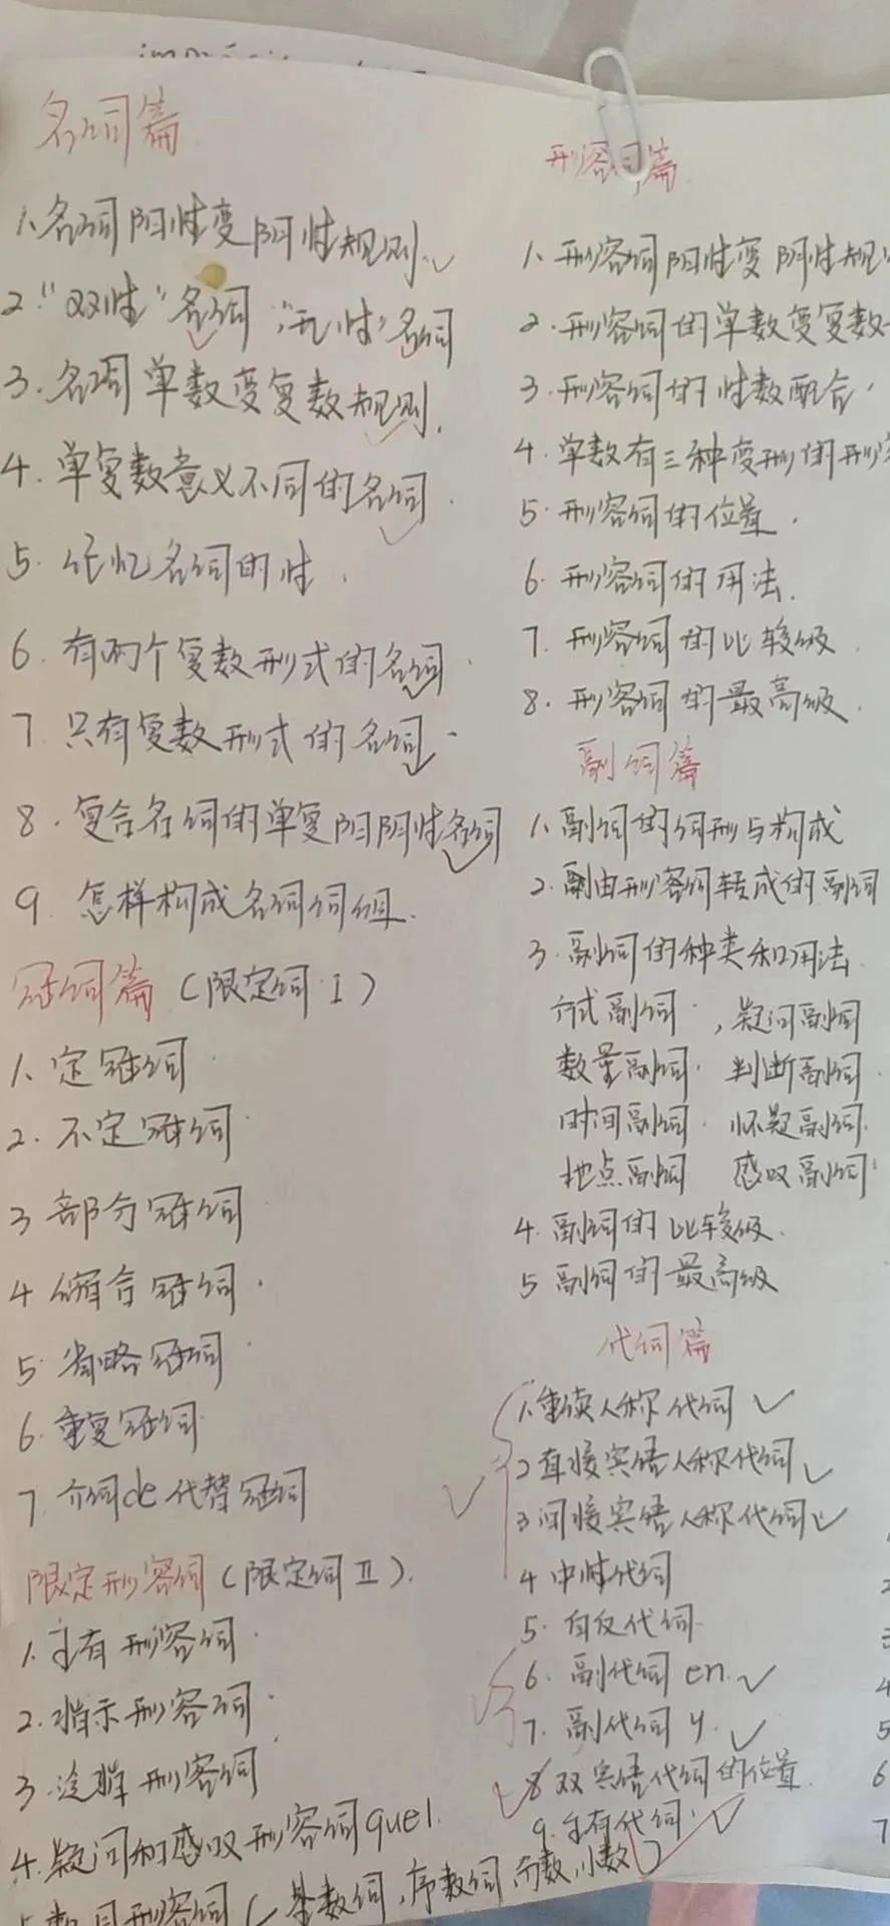 名词篇
1、名词阳性变阴性规则
2."双性"名词;"无性"名词
3.名词单数变复数规则.
4.单复数意义不同的名词.
5.记忆名词的性.
6.有两个复数形式的名词.
7.只有复数形式的名词.
8.复合名词的单复阳阴性名词
9.怎样构成名词词组.
冠词篇(限定词I)
1、定冠词
2.不定冠词
3部分冠词
4缩合冠词.
5.省略冠词
6.重复冠词
7.介词de代替冠词
限定形容词(限定词II).
1.主有形容词.
2.指示形容词.
3.泛指形容词
4.疑问和感叹形容词quel.
数目形容词(基数词,序数词,分数,小数)
形容词篇
1、形容词阳性变阴性规
2.形容词的单数变复数
3.形容词的性数配合.
4.单数有三种变形的形
5.形容词的位置.
6.形容词的用法.
7.形容词的比较级.
8.形容词的最高级.
副词篇
1、副词的词形与构成
2.由形容词转成的副词
3.副词的种类和用法.
方式副词.,疑问副词
数量副词.判断副词.
时间副词.怀疑副词.
地点副词 感叹副词
4.副词的比较级.
5副词的最高级
代词篇
1.重读人称代词
2直接宾语人称代词
3间接宾语人称代词
4中性代词
5.自反代词
6.副代词en.
7.副代词y.
8双宾语代词的位置.
9.主有代词.
4
5
6
7